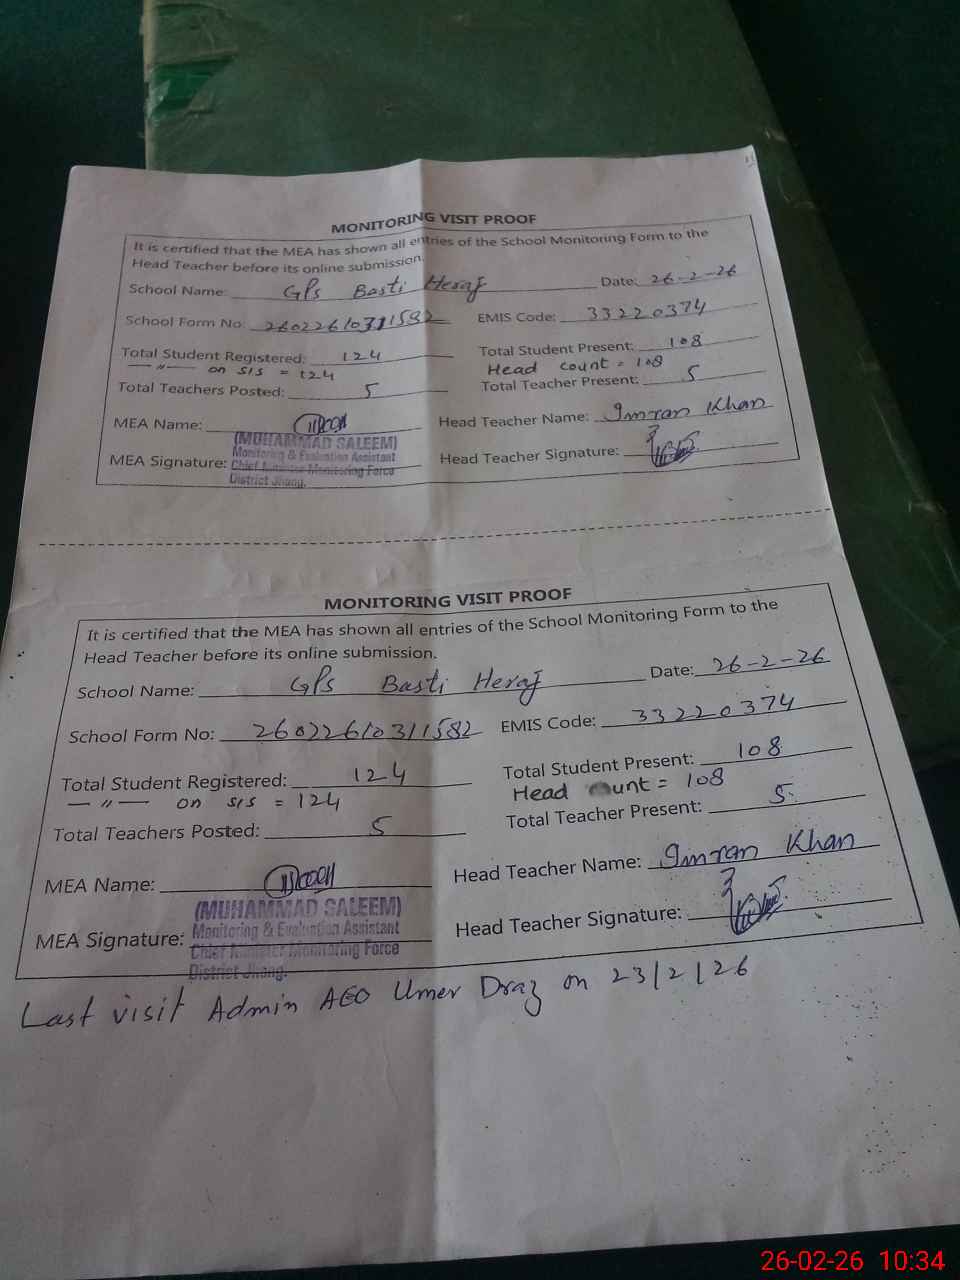 MONITORING VISIT PROOF
It is certified that the MEA has shown all entries of the School Monitoring Form to the
Head Teacher before its online submission.
School Name: GPS Basti Heraj Date: 26-2-26
School Form No: 26022610311582 EMIS Code: 33220374
Total Student Registered: 124 Total Student Present: 108
— 〃 — on SIS = 124 Head count = 108
Total Teachers Posted: 5 Total Teacher Present: 5
MEA Name: Head Teacher Name: Imran Khan
(MUHAMMAD SALEEM)
Monitoring & Evaluation Assistant
MEA Signature: Chief Minister Monitoring Force Head Teacher Signature:
District Jhang.
MONITORING VISIT PROOF
It is certified that the MEA has shown all entries of the School Monitoring Form to the
Head Teacher before its online submission.
School Name: GPS Basti Heraj Date: 26-2-26
School Form No: 26022610311582 EMIS Code: 33220374
Total Student Registered: 124 Total Student Present: 108
— 〃 — on SIS = 124 Head count = 108
Total Teachers Posted: 5 Total Teacher Present: 5
MEA Name: Head Teacher Name: Imran Khan
(MUHAMMAD SALEEM)
Monitoring & Evaluation Assistant
MEA Signature: Chief Minister Monitoring Force Head Teacher Signature:
District Jhang.
Last visit Admin AEO Umer Draz on 23/2/26
26-02-26 10:34